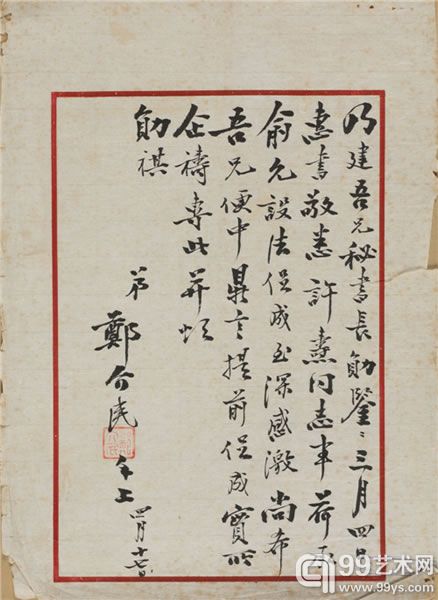 乃建吾兄秘書長勛鑒：三月四日
惠書敬悉許熹同志事荷承
俞允設法促成至深感激尚希
吾兄便中鼎言提前促成實所
企禱專此并頌
勛祺
弟
鄭介民
手上
四月十七日
99艺术网
www.99ys.com